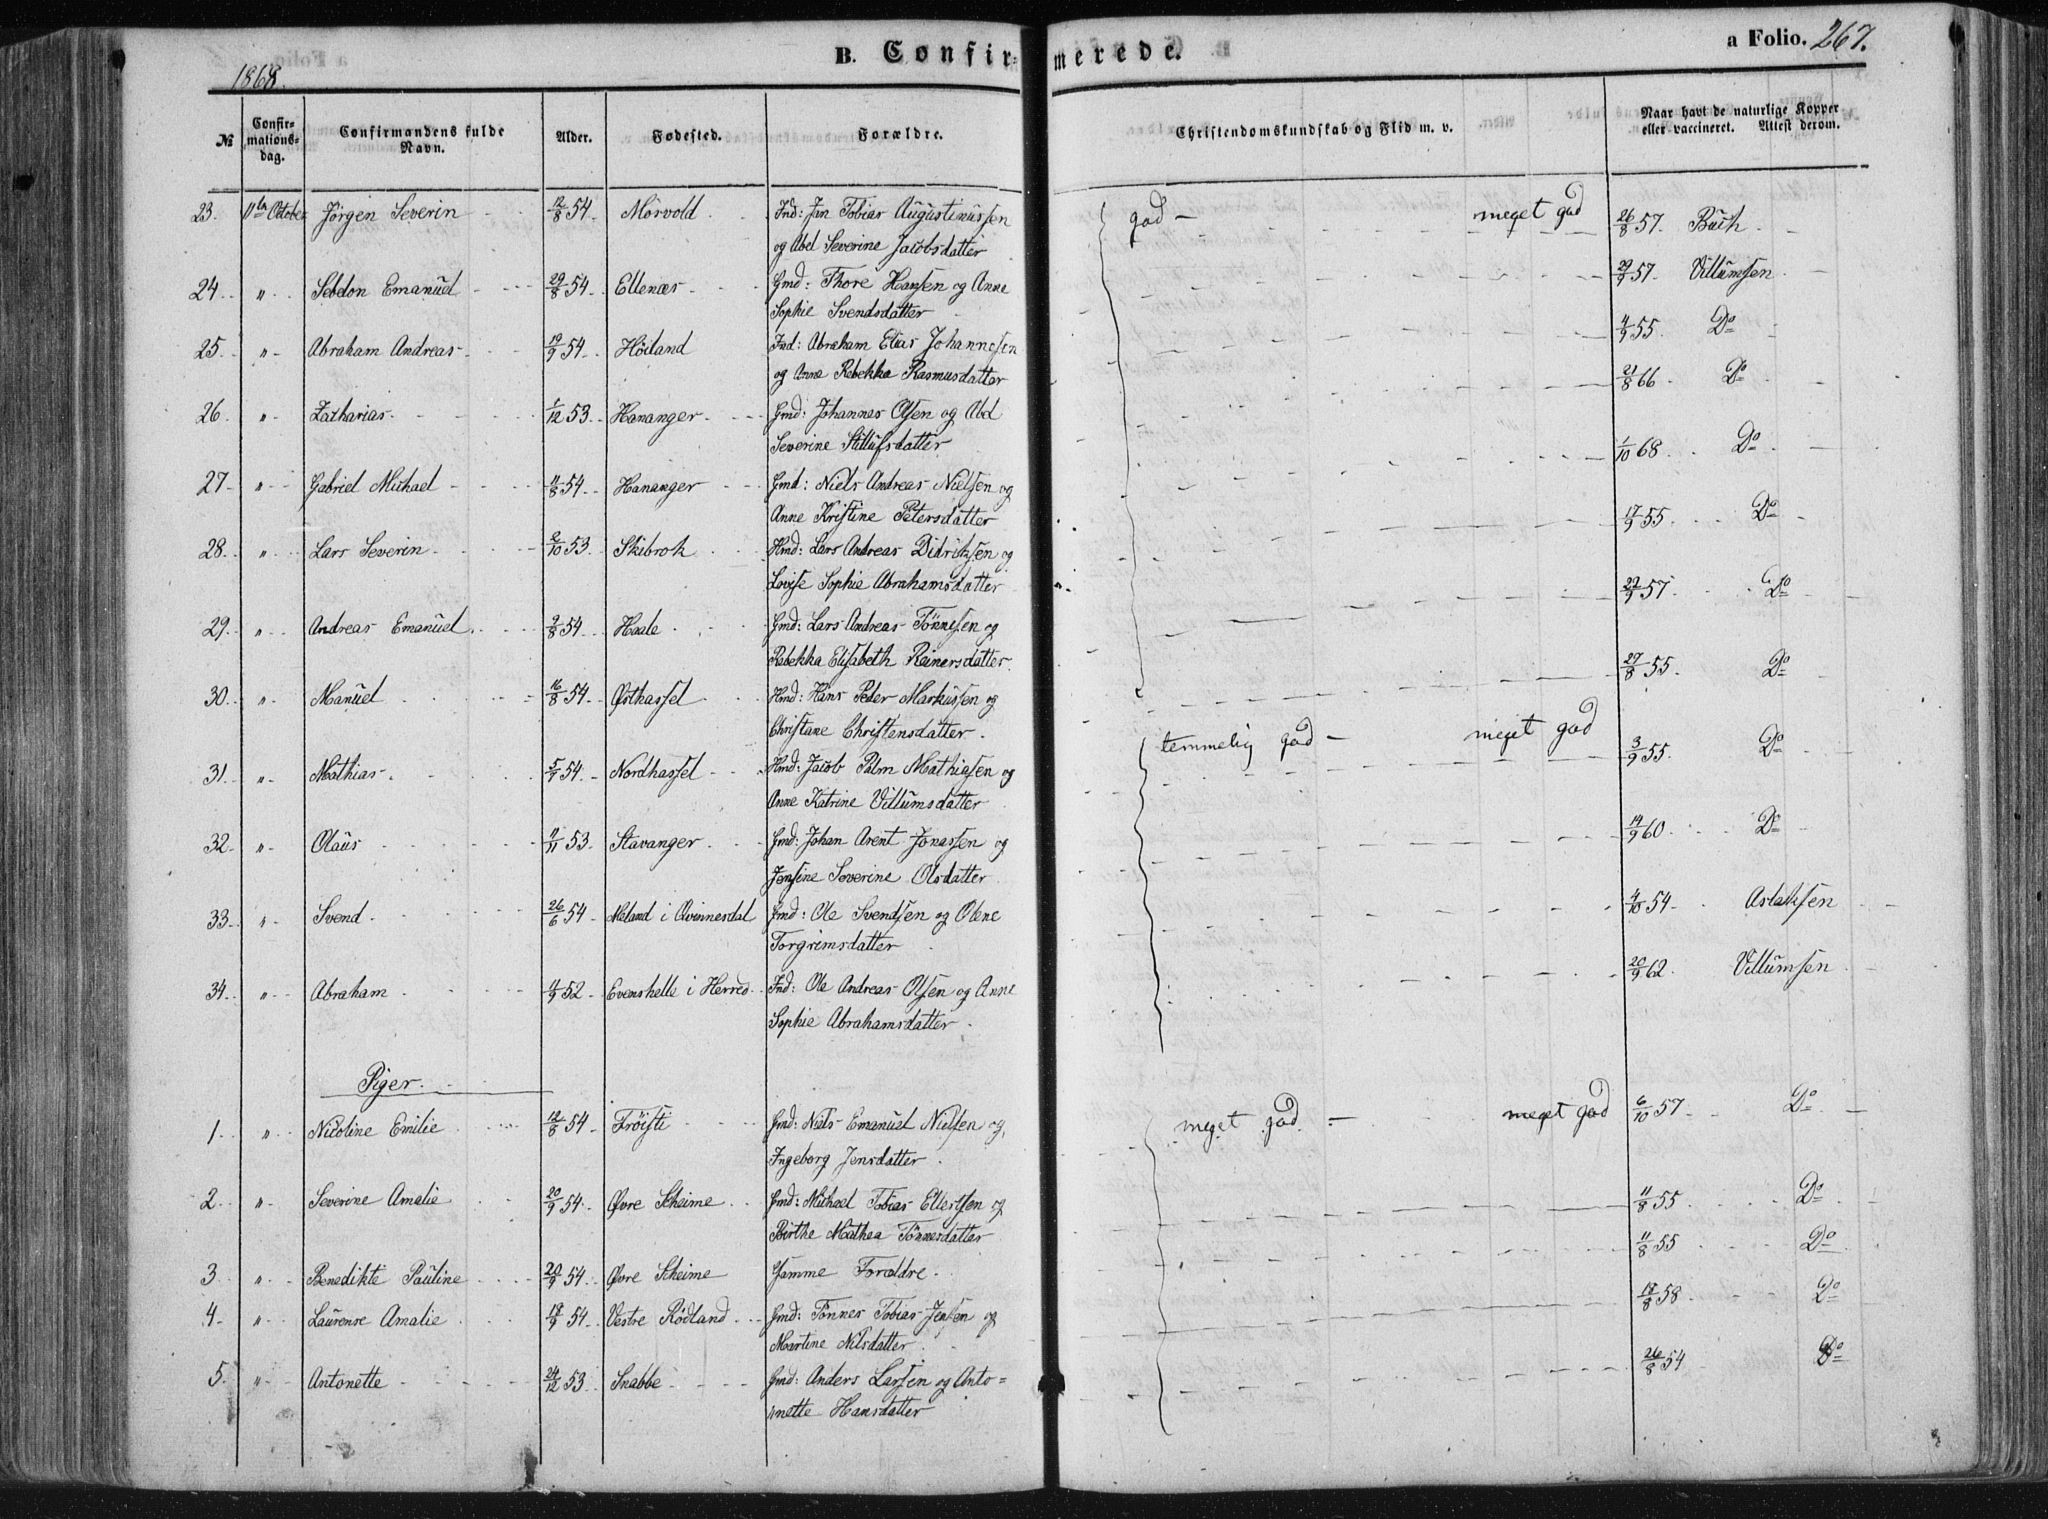 B. Confirmerede.
a Folio. 267.
1868.
№ Confirmationsdag. Confirmandens fulde Navn. Alder. Fødested. Forældre. Christendomskundskab og Flid m. v. Naar havt de naturlige Kopper eller vaccineret. Attest derom.
23. 11te October Jörgen Severin 12/8 54. Mörvold Ind: Jan Tobias Augustinussen god — meget god 26/8 57. Buch
og Abel Severine Jacobsdatter
24. " Sebdon Emanuel 29/8 54. Ellenæs Gmd: Thore Hansen og Anne 29/9 57. Villumsen
Sophie Svendsdatter
25. " Abraham Andreas 19/9 54. Höiland Ind: Abraham Elias Johannesen 4/9 55. Do
og Anne Rebekka Rasmusdatter
26. " Zacharias 1/12 53. Hananger Gmd: Johannes Olsen og Abel 21/8 66. Do
Severine Stillufsdatter
27. " Gabriel Michael 11/8 54. Hananger Gmd: Niels Andreas Nielsen og 1/10 68. Do
Anne Kristine Petersdatter
28. " Lars Severin 2/10 53. Skibrok Hmd: Lars Andreas Didriksen og 17/9 55. Do
Lovise Sophie Abrahamsdatter
29. " Andreas Emanuel 9/8 54. Haale Gmd: Lars Andreas Tönnesen og 22/9 57. Do
Rebekka Elisabeth Reinersdatter
30. " Manuel 16/8 54. Østhassel Hmd: Hans Peder Markussen og 27/8 55. Do
Christiane Christensdatter.
31. " Mathias 5/9 54. Nordhassel Hmd: Jacob Palm Mathiasen og temmelig god — meget god 3/9 55. Do
Anne Katrine Villumsdatter
32. " Olaus 11/11 53. Stavanger Gmd: Johan Arent Jonassen og 14/9 60. Do
Jensine Severine Olsdatter
33. " Svend 26/6 54. Meland i Qvinnesdal Gmd: Ole Svendsen og Olene 4/10 54. Aslaksen
Torgrimsdatter
34. " Abraham 4/9 52. Evenshelle i Herred Ind: Ole Andreas Olsen og Anne 20/9 62. Villumsen
Sophie Abrahamsdatter
Piger.
1. " Nicoline Emilie 12/8 54. Fröisti Gmd: Niels Emanuel Nielsen og meget god — meget god 6/10 57. Do
Ingeborg Jensdatter
2. " Severine Amalie 20/9 54. Øvre Skeime Gmd: Michael Tobias Ellertsen og 11/8 55. Do
Birthe Mathea Tönnesdatter
3. " Benedikte Pauline 20/9 54. Øvre Skeime Samme Forældre. 11/8 55 Do
4. " Laurense Amalie 18/9 54. Vestre Rödland Gmd: Tönnes Tobias Jensen og 18/8 58. Do
Martine Nilsdatter
5. " Antonette 24/12 53. Snabbe Gmd: Anders Larsen og Anto= 26/8 54 Do
nette Hansdatter